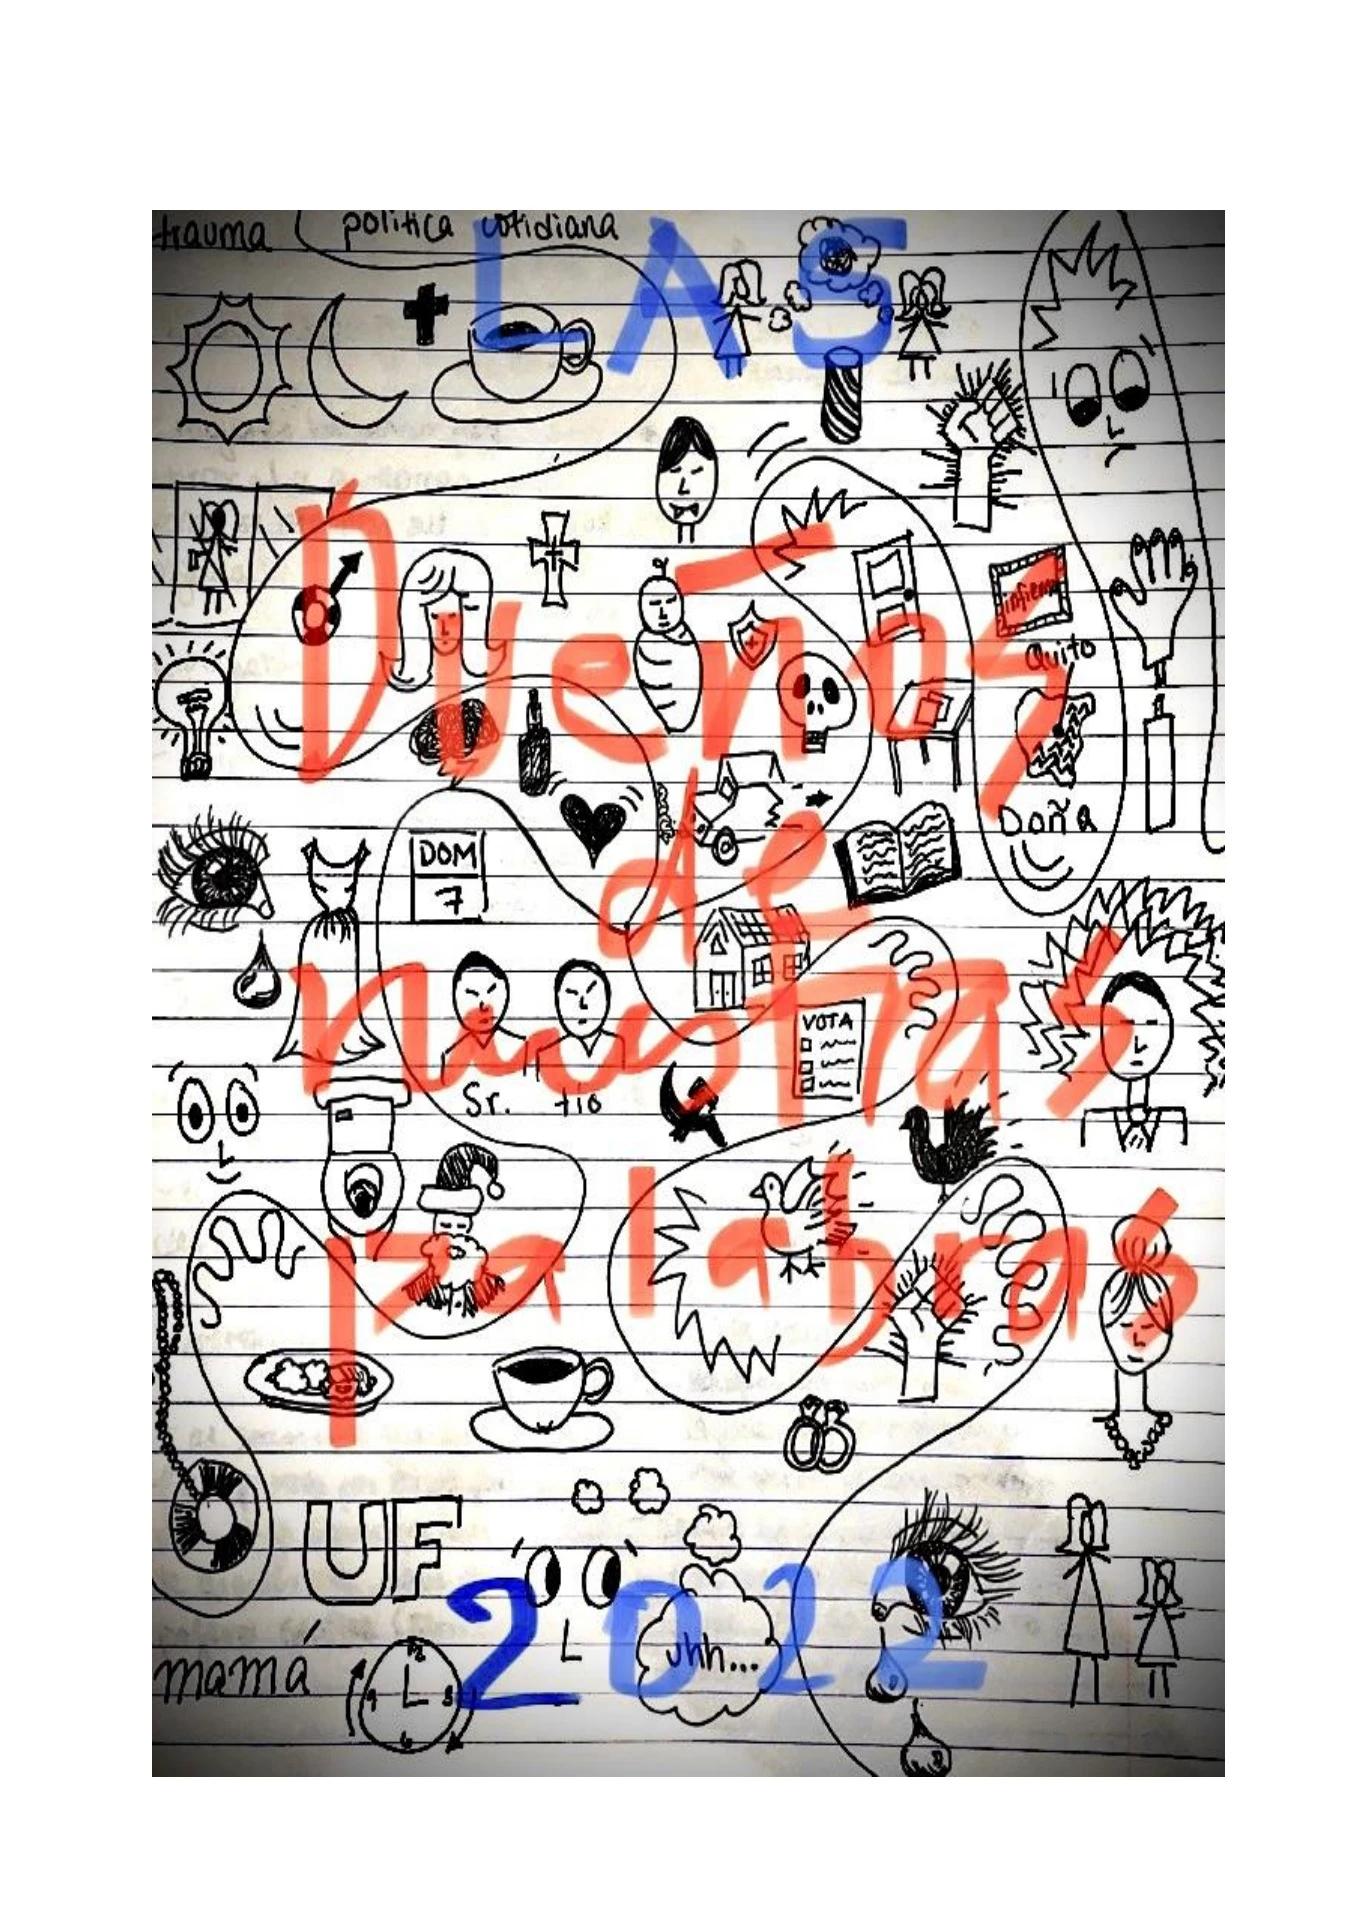 trauma
política cotidiana
LAS
Dueñas
infierno
Quito
Doña
DOM
7
de
nuestras
VOTA
Sr. tío
palabras
UF
2022
uhh...
mamá
12
9 3
6